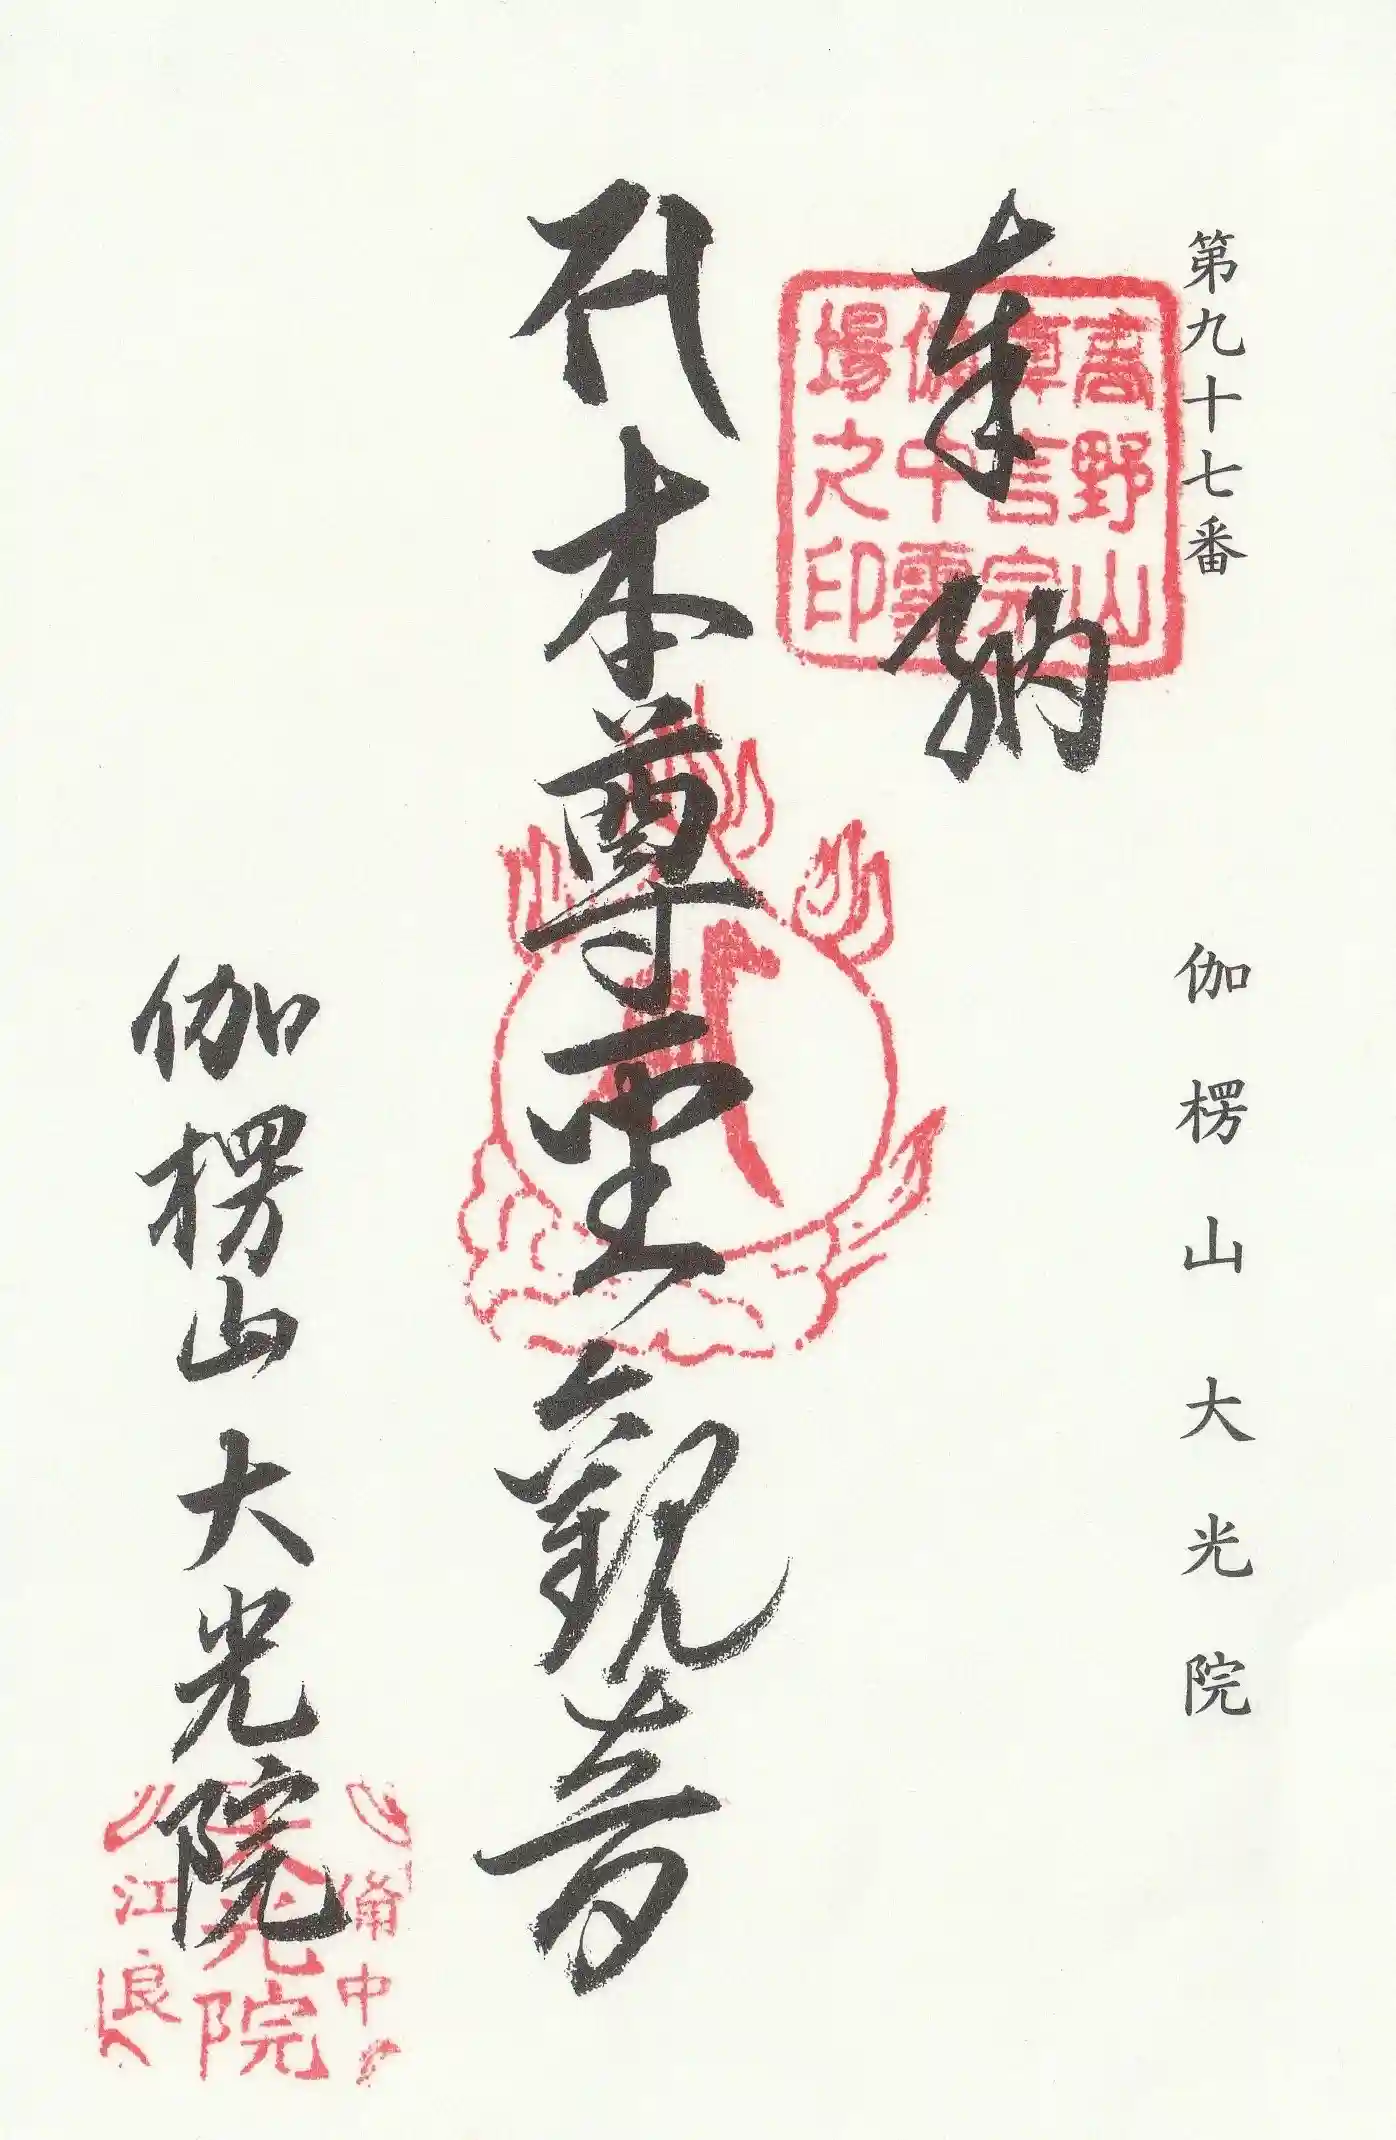 第九十七番　伽楞山大光院
奉納
高野山
真言宗
備中霊
場之印
本尊聖觀音
伽楞山 大光院
備中
大光院
江良